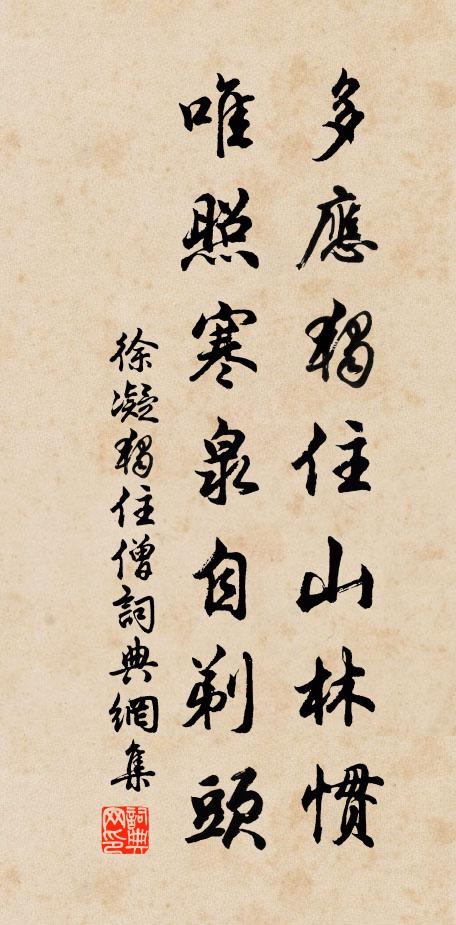 多應獨住山林慣
唯照寒泉自剃頭
徐凝獨住僧詞典網集
詞典網印